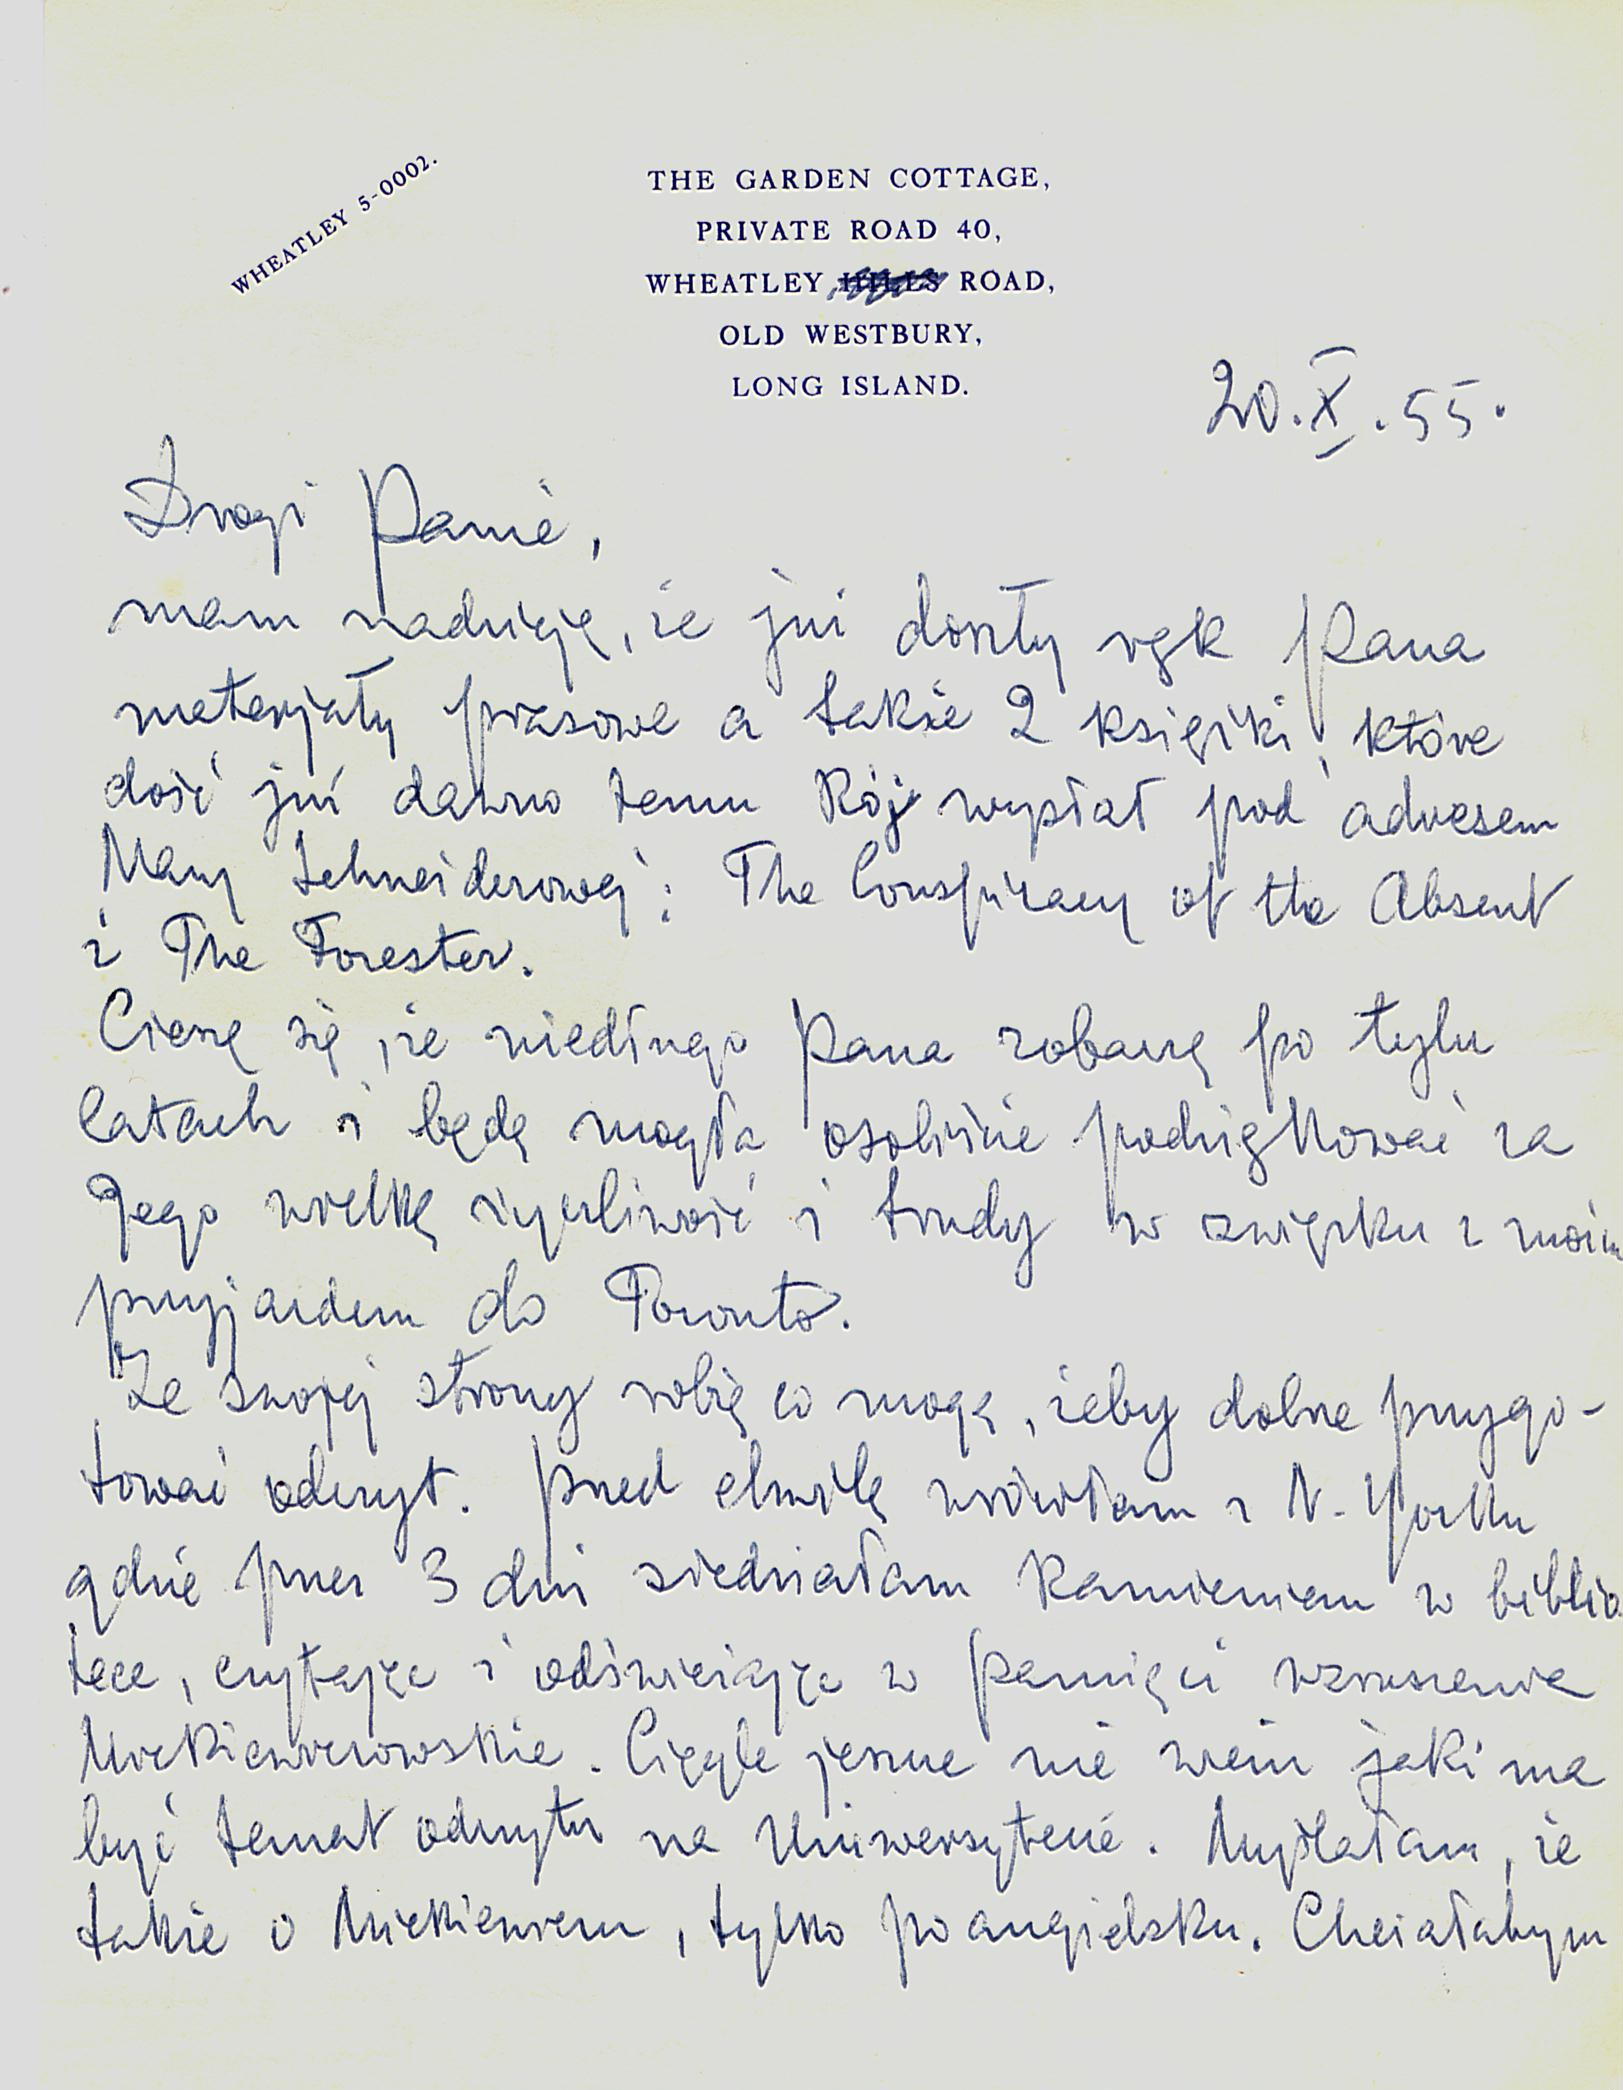 WHEATLEY 5-0002.
THE GARDEN COTTAGE,
PRIVATE ROAD 40,
WHEATLEY HILLS ROAD,
OLD WESTBURY,
LONG ISLAND.
20.X.55.
Drogi Panie,
mam nadzieję, że już doszły rąk Pana
materjały prasowe a także 2 książki, które
dość już dawno temu Rój wysłał pod adresem
Mary Schneiderowej: The Conspiracy of the Absent
i The Forester.
Cieszę się, że niedługo Pana zobaczę po tylu
latach i będę mogła osobiście podziękować za
Jego wielką życzliwość i trudy w związku z moim
przyjazdem do Toronto.
Ze swojej strony robię co mogę, żeby dobrze przygo-
tować odczyt. Przed chwilą wróciłam z N. Yorku
gdzie przez 3 dni siedziałam kamieniem w biblio
tece, czytając i odświeżając w pamięci wzruszenia
Mickiewiczowskie. Ciągle jeszcze nie wiem jaki ma
być temat odczytu na Uniwersytecie. Myślałam, że
także o Mickiewiczu, tylko po angielsku. Chciałabym